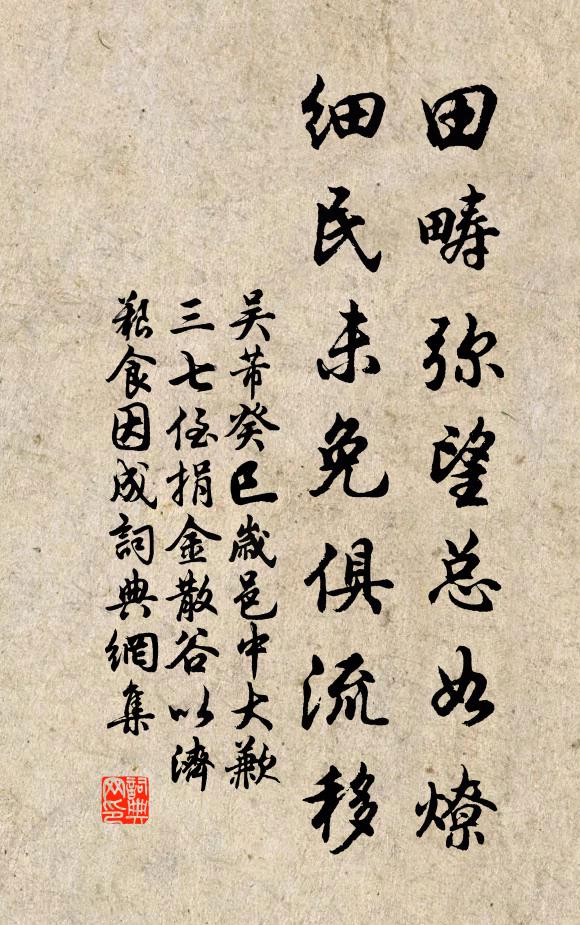 田畴弥望总如燎
细民未免俱流移
吴芾癸巳岁邑中大歉
三七侄捐金散谷以济
艰食因成詞典網集
詞典网印